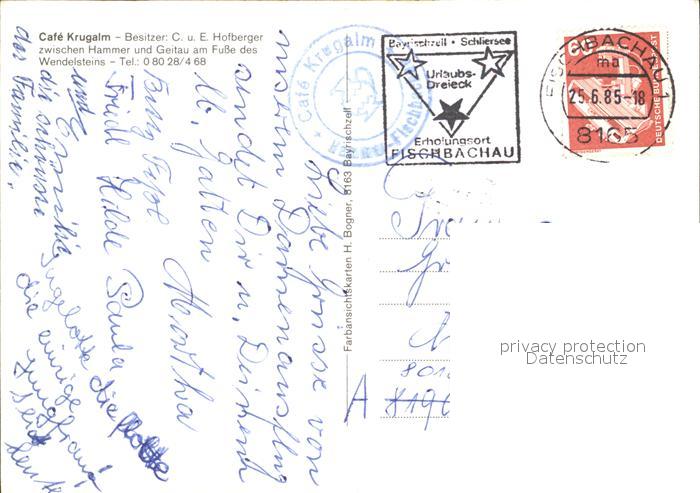 Café Krugalm – Besitzer: C. u. E. Hofberger
zwischen Hammer und Geitau am Fuße des
Wendelsteins – Tel.: 0 80 28/4 68
Café Krugalm
Bayrischzell • Schliersee
Urlaubs-
Dreieck
Erholungsort
FISCHBACHAU
FISCHBACHAU 1
ma
25.6.85-18
8165
60
DEUTSCHE BUNDESPOST
Farbansichtskarten H. Bogner, 8163 Bayrischzell
Liebe Grüsse von
unserem Damenausflug
sendet Dir u. Deinem
lb. Gatten Hertha
Friedl Hilde Paula
und
die schönste
der Familie.
die einzige
Jungfrau
A 8190
privacy protection
Datenschutz